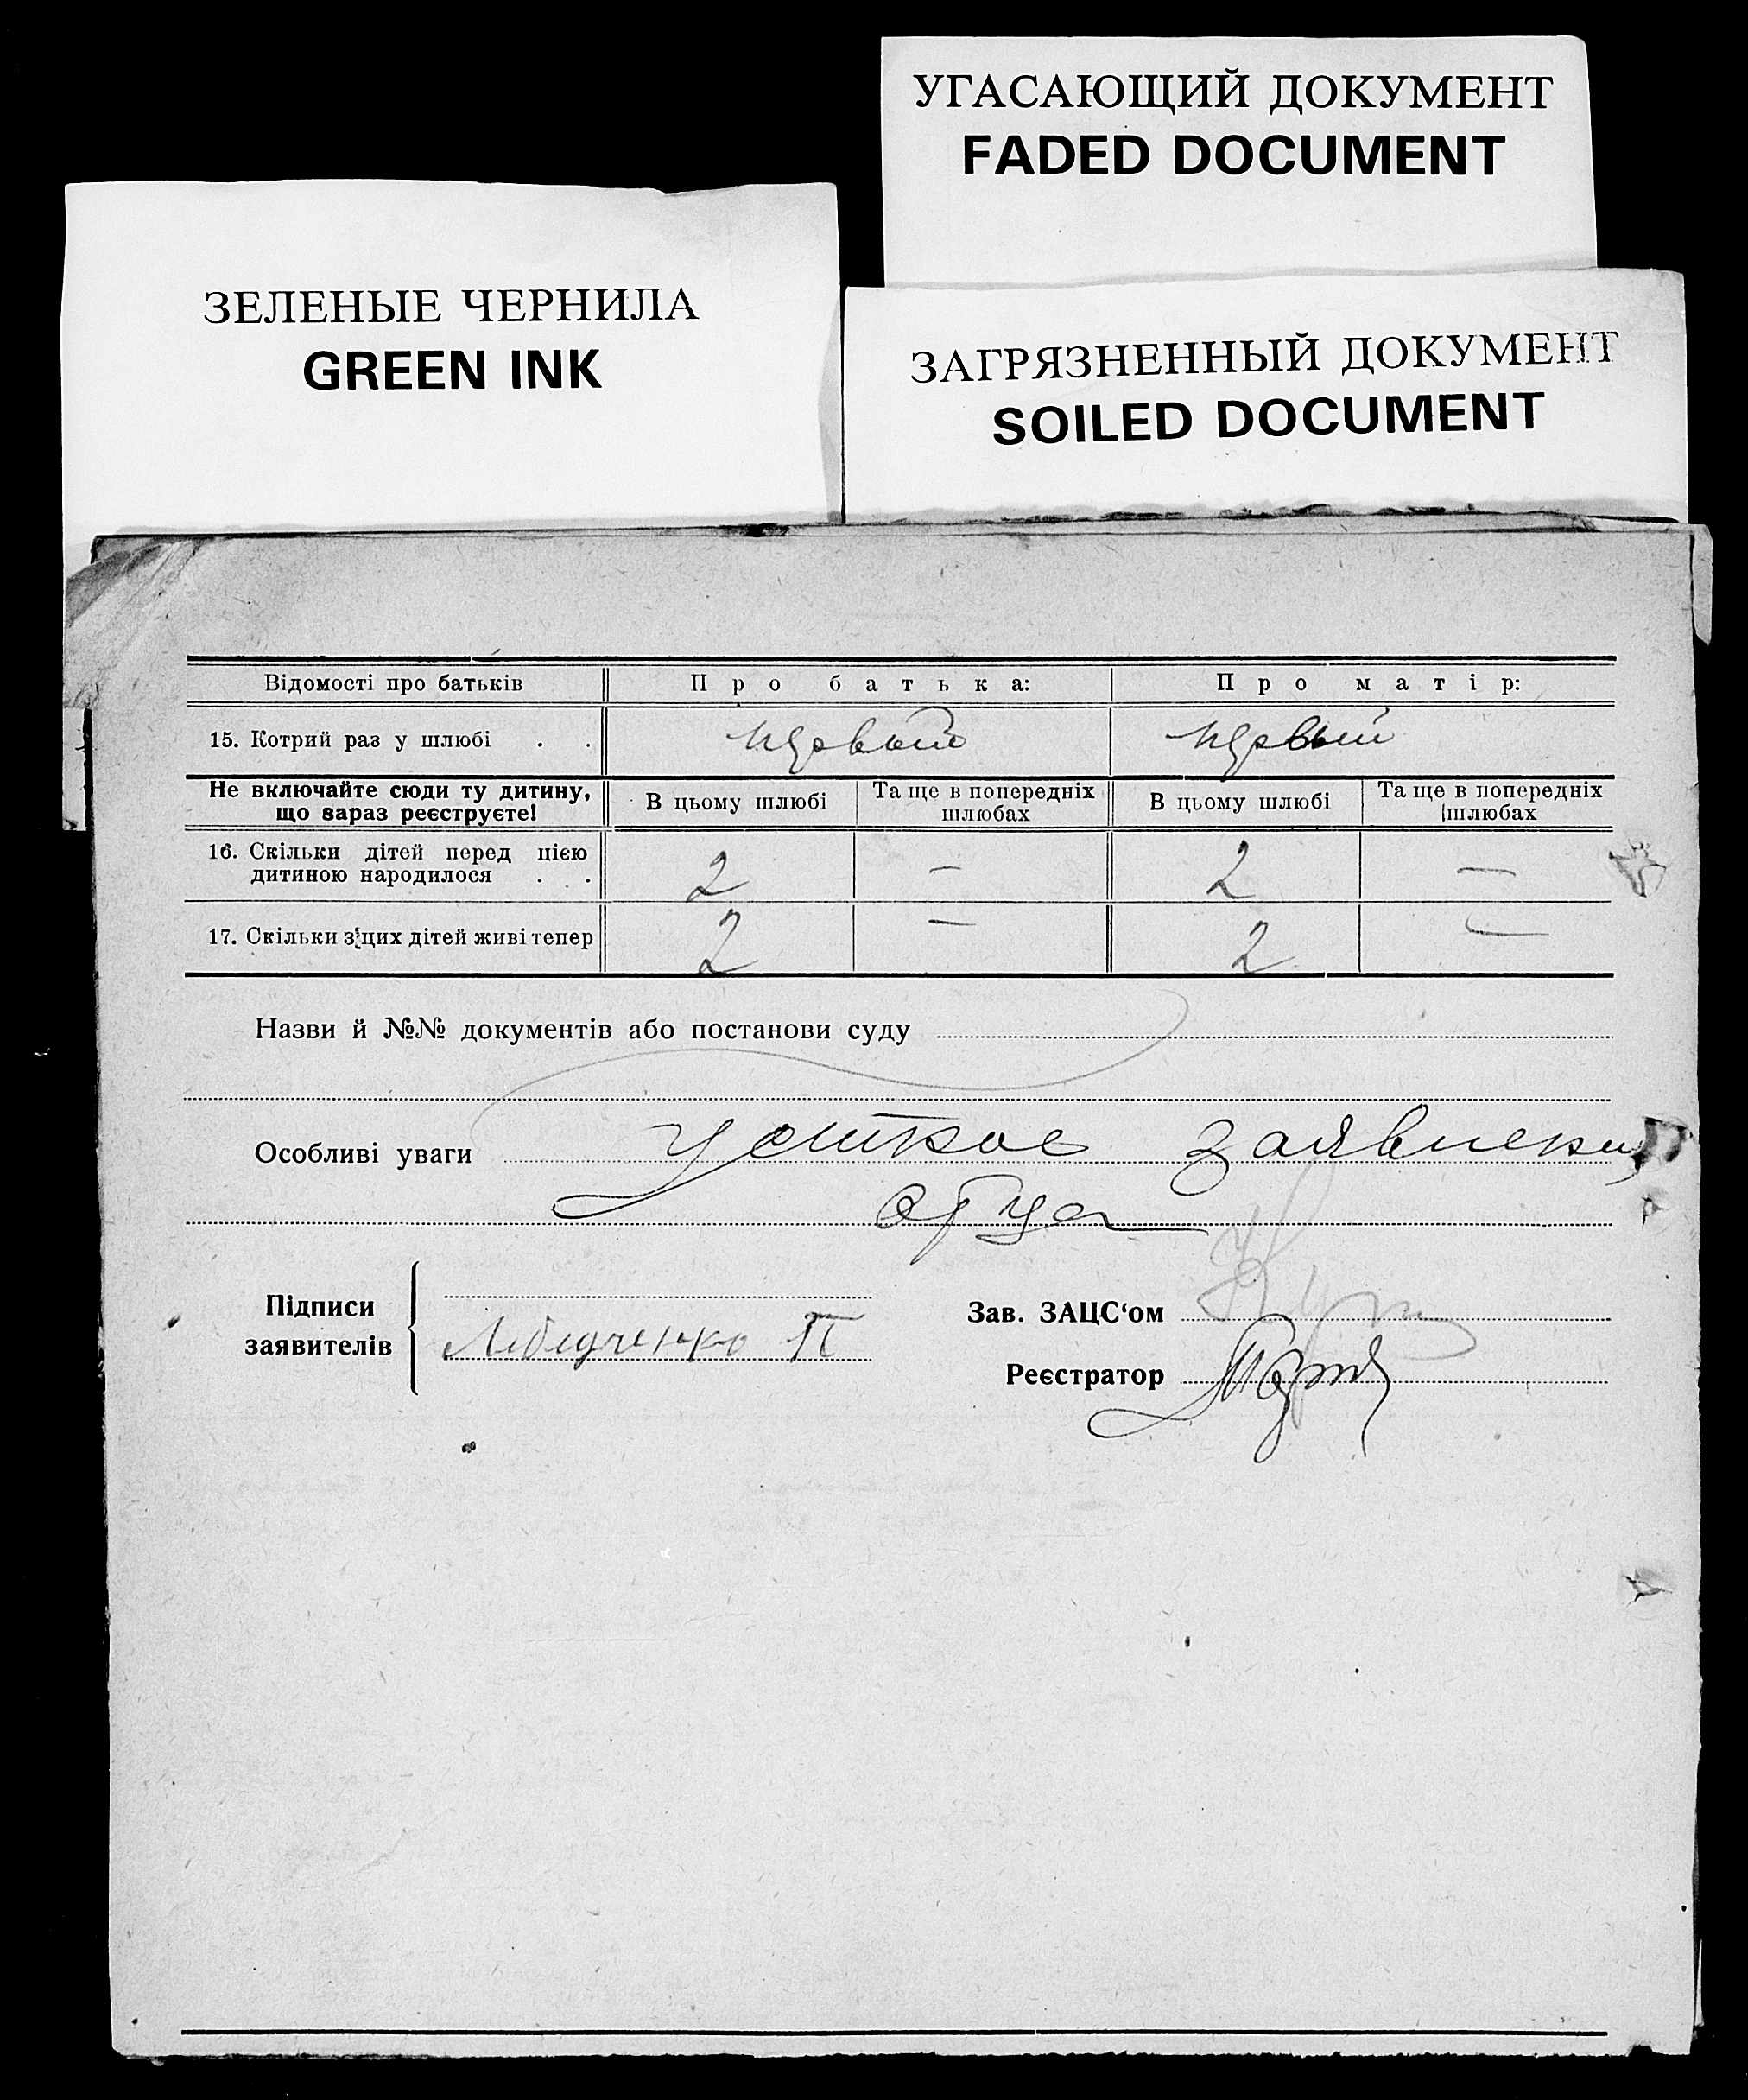 УГАСАЮЩИЙ ДОКУМЕНТ
FADED DOCUMENT
ЗЕЛЕНЫЕ ЧЕРНИЛА
GREEN INK
ЗАГРЯЗНЕННЫЙ ДОКУМЕНТ
SOILED DOCUMENT
Відомості про батьків Про батька: Про матір:
15. Котрий раз у шлюбі . . первый первый
Не включайте сюди ту дитину, що зараз реєструєте! В цьому шлюбі Та ще в попередніх шлюбах В цьому шлюбі Та ще в попередніх шлюбах
16. Скільки дітей перед цією дитиною народилося . . . 2 — 2 —
17. Скільки з цих дітей живі тепер 2 — 2 —
Назви й №№ документів або постанови суду
Особливі уваги устное заявление
отца
Підписи заявителів
Лебедченко П
Зав. ЗАЦС‘ом
Реєстратор